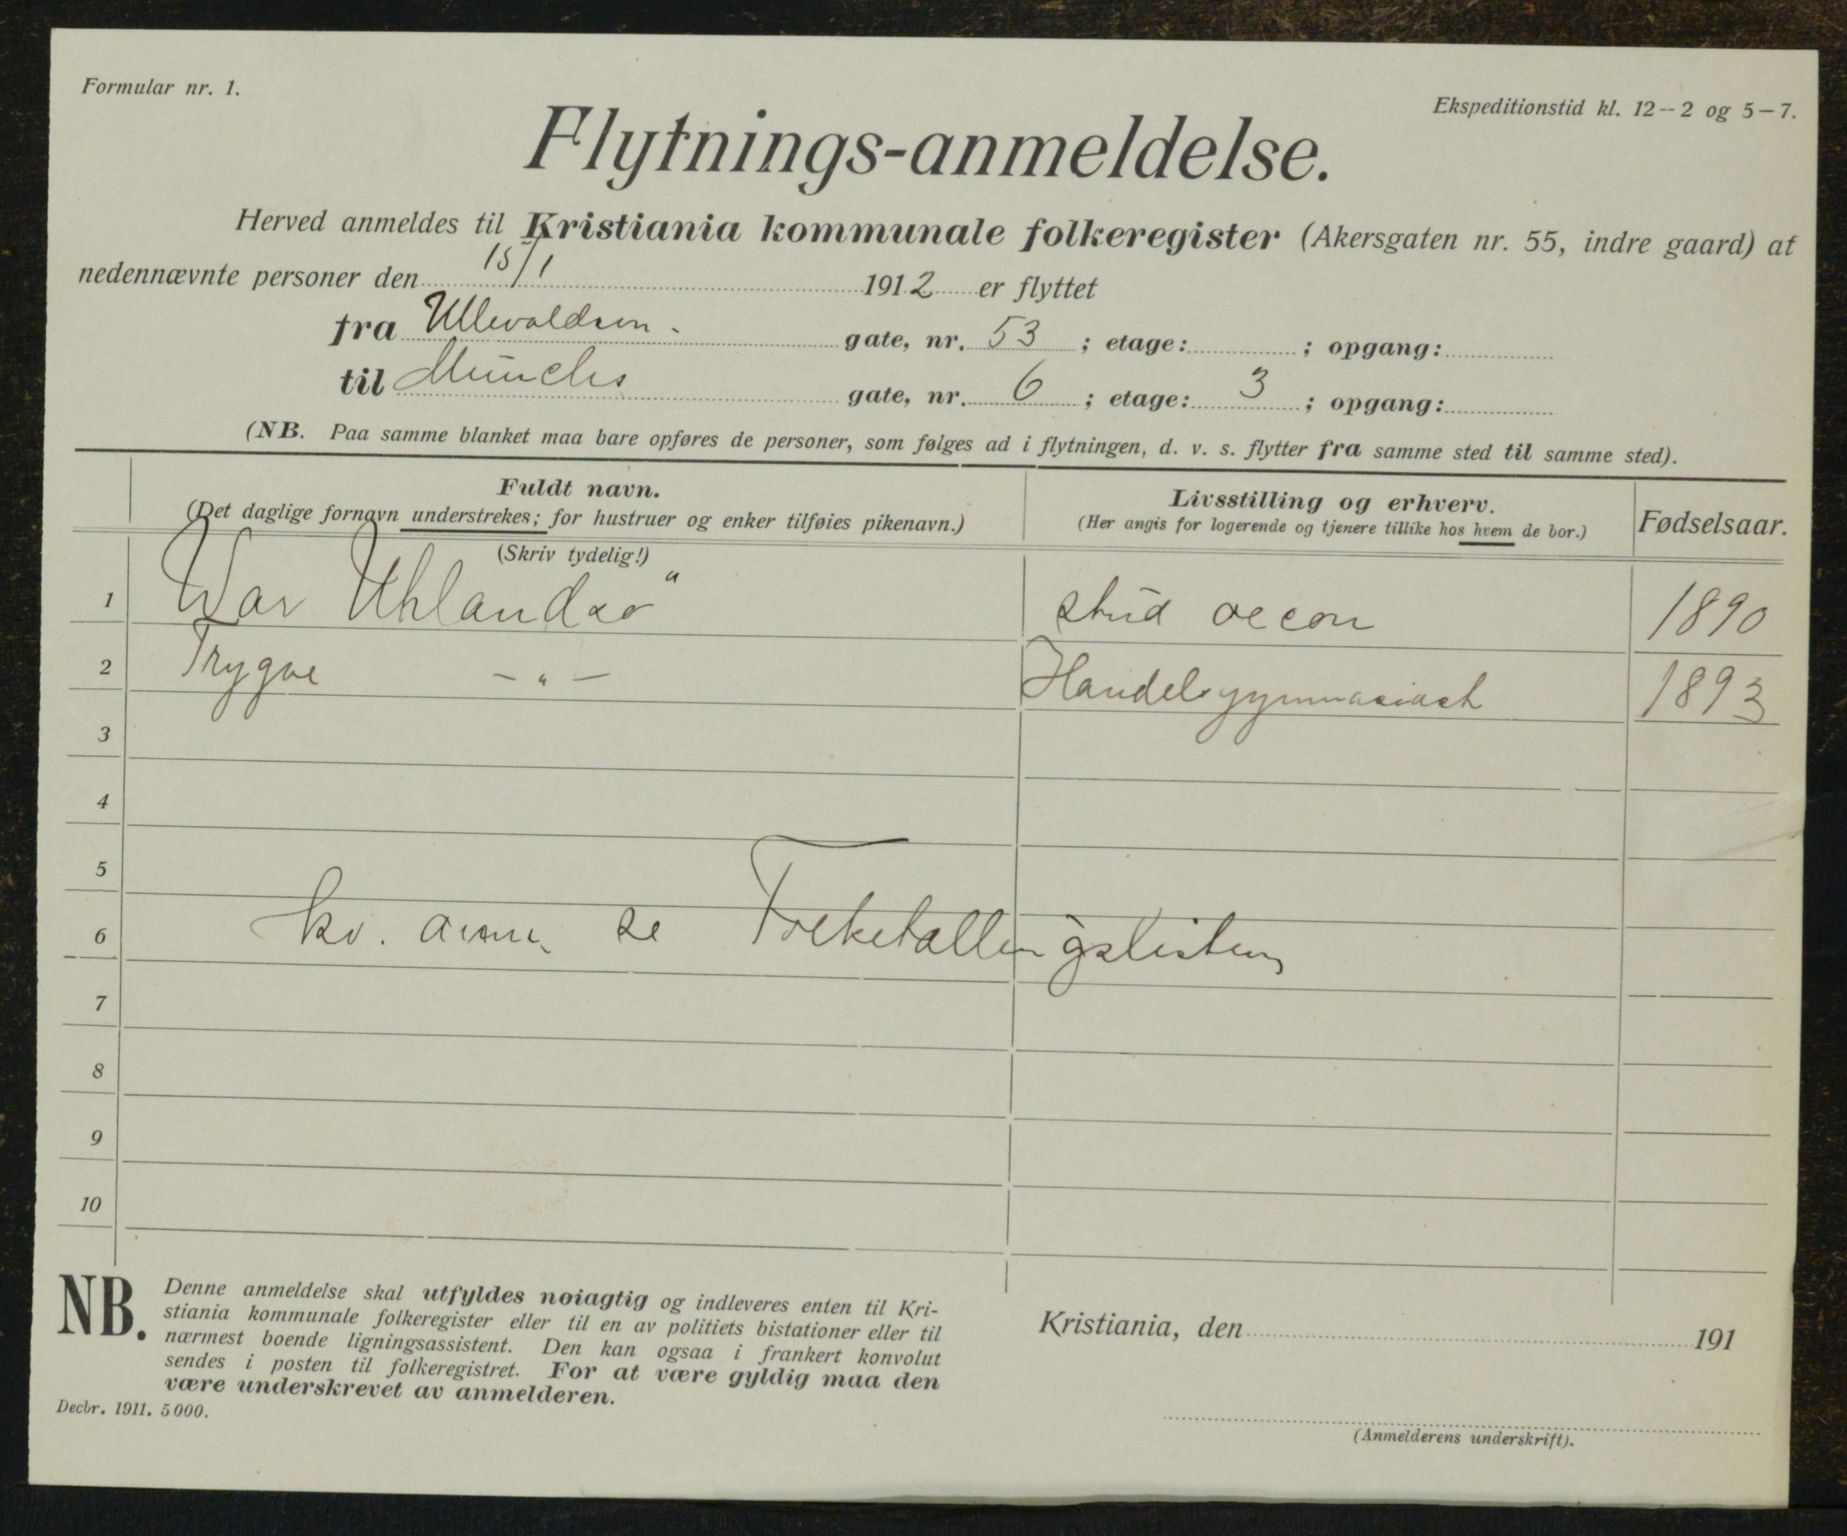 Formular nr. 1.
Ekspeditionstid kl. 12–2 og 5–7.
Flytnings-anmeldelse.
Herved anmeldes til Kristiania kommunale folkeregister (Akersgaten nr. 55, indre gaard) at
nedennævnte personer den 15/1 1912 er flyttet
fra Ullevaldsvn. gate, nr. 53 ; etage: ; opgang:
til Münchs gate, nr. 6 ; etage: 3 ; opgang:
(NB. Paa samme blanket maa bare opføres de personer, som følges ad i flytningen, d. v. s. flytter fra samme sted til samme sted).
Fuldt navn.
(Det daglige fornavn understrekes; for hustruer og enker tilføies pikenavn.)
(Skriv tydelig!)
Livsstilling og erhverv.
(Her angis for logerende og tjenere tillike hos hvem de bor.)
Fødselsaar.
1 stud oecon 1890
2 Trygve – " – Handelsgymnasiast 1893
3
4
5
6 se Folketællingslisten
7
8
9
10
NB. Denne anmeldelse skal utfyldes nøiagtig og indleveres enten til Kri-
stiania kommunale folkeregister eller til en av politiets bistationer eller til
nærmest boende ligningsassistent. Den kan ogsaa i frankert konvolut
sendes i posten til folkeregistret. For at være gyldig maa den
være underskrevet av anmelderen.
Kristiania, den 191
Decbr. 1911. 5000.
(Anmelderens underskrift).